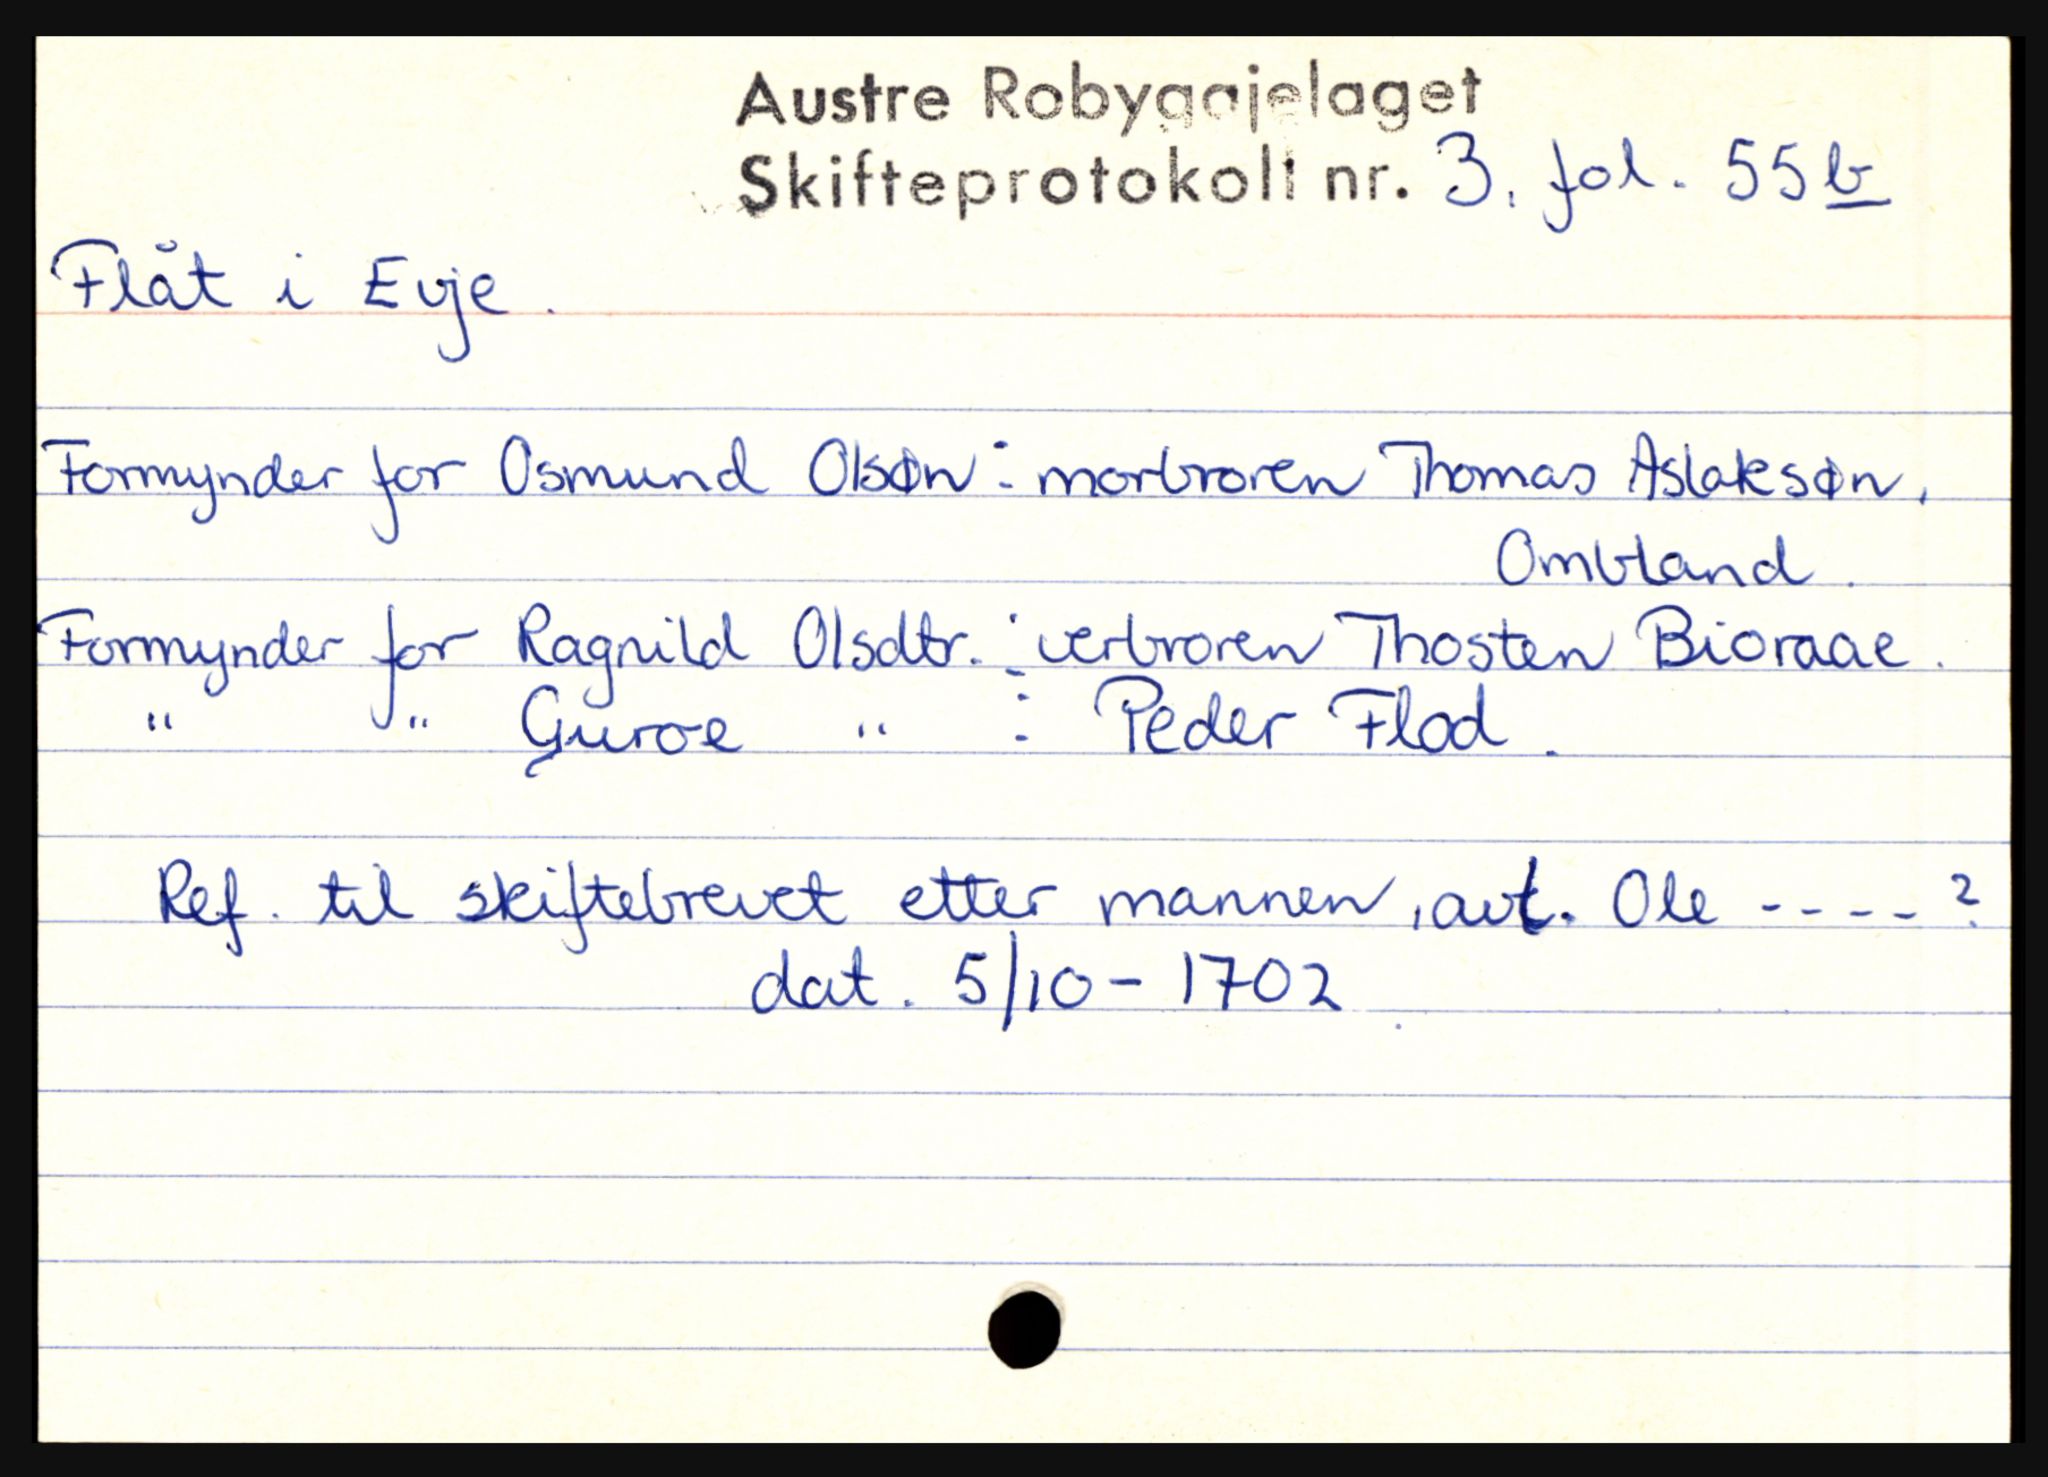 Austre Robyggjelaget
Skifteprotokoll nr. 3, fol. 55b
Flåt i Evje.
Formynder for Osmund Olsøn : morbroren Thomas Aslaksøn,
Ombland.
Formynder for Ragnild Olsdtr. : verbroren Thosten Bioraae.
" " Guroe " : Peder Flod.
Ref. til skiftebrevet etter mannen, avt. Ole ----?
dat. 5/10-1702.